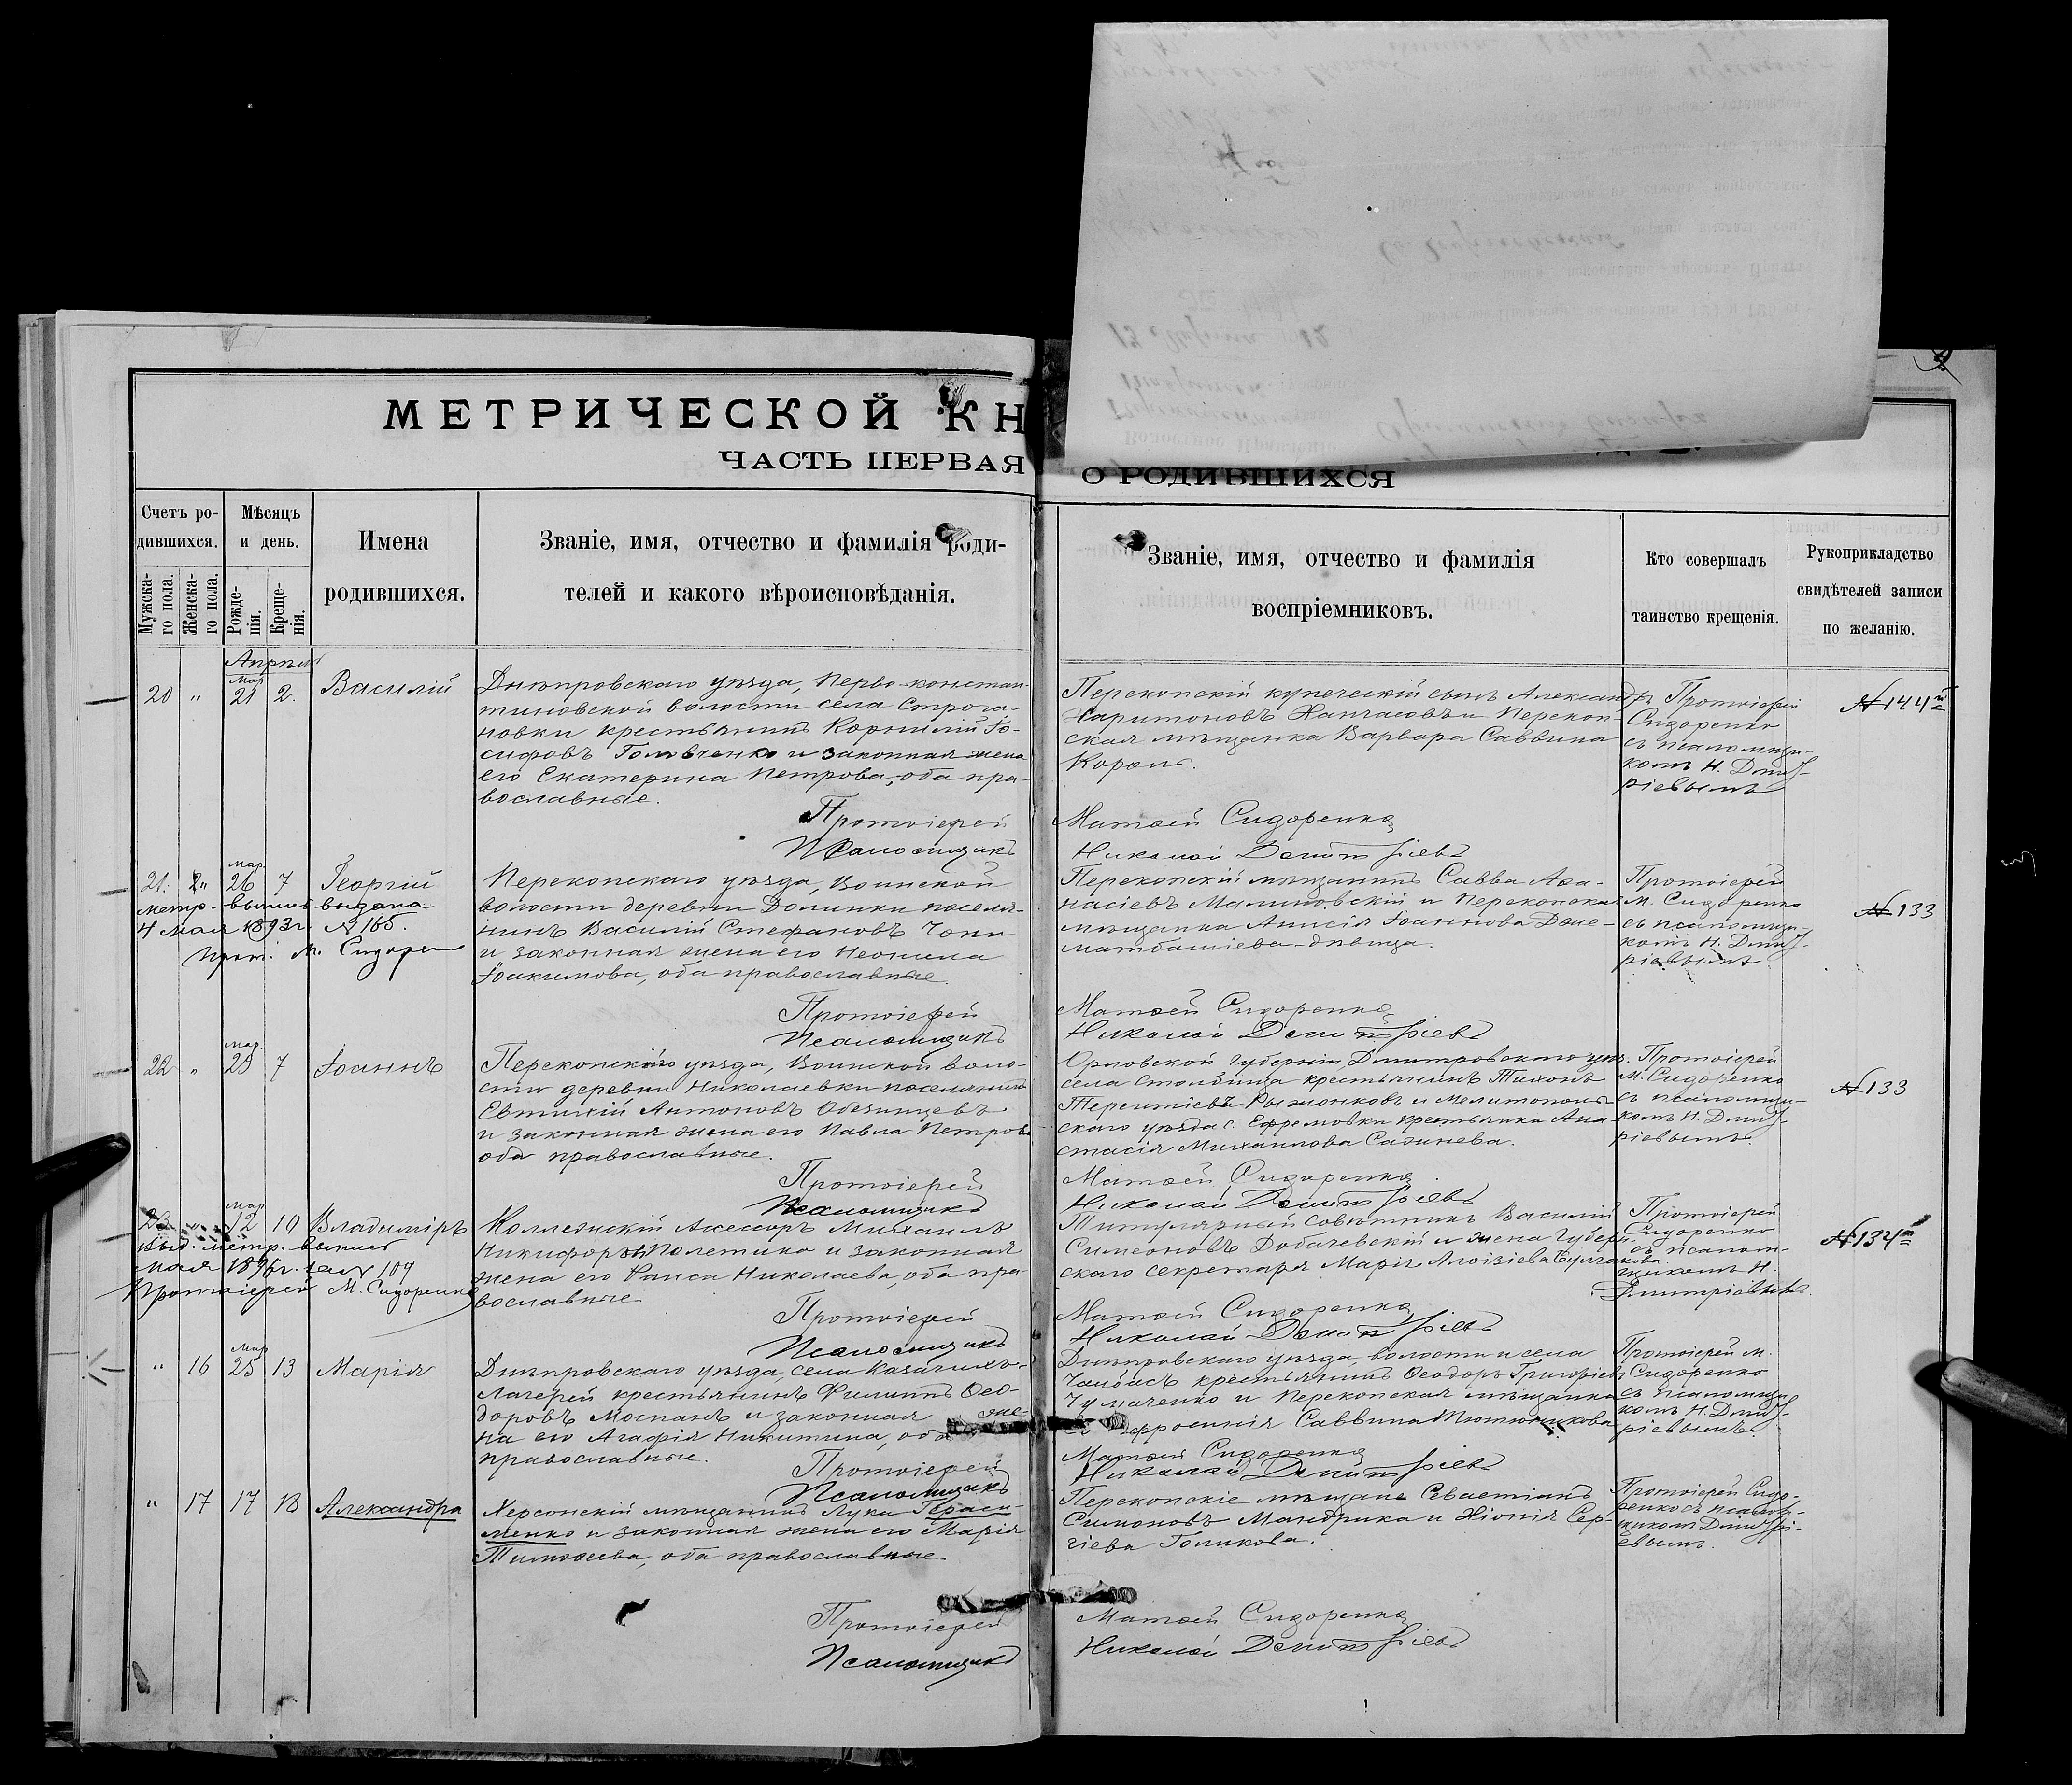 МЕТРИЧЕСКОЙ КН
ЧАСТЬ ПЕРВАЯ
О РОДИВШИХСЯ
Счетъ ро-
дившихся.
Мужска-
го пола.
Женска-
го пола.
Мѣсяцъ
и день.
Рожде-
нія.
Креще-
нія.
Имена
родившихся.
Званіе, имя, отчество и фамилія роди-
телей и какого вѣроисповѣданія.
Званіе, имя, отчество и фамилія
воспріемниковъ.
Кто совершалъ
таинство крещенія.
Рукоприкладство
свидѣтелей записи
по желанію.
Апрѣль
Мар
20 " 21 2. Василій
Днѣпровскаго уѣзда, Перво-констан-
тиновской волости села Строга-
новки крестьянинъ Корнилій Іо-
сифовъ Головченко и законная жена
его Екатерина Петрова, оба пра-
вославные.
Протоіерей
Псаломщикъ
Перекопскій купеческій сынъ Александръ
Харитоновъ и Перекоп-
ская мѣщанка Варвара Саввина
Король.
Матѳей Сидоренко
Николай Димитріевъ
Протоіерей
Сидоренко
съ псаломщи-
комъ Н. Дмит-
ріевымъ
№144й
Мар.
21. 26 7 Георгій
метр. выпись выдана
4 мая 1893г. № 165.
Прот. М. Сидорен
Перекопскаго уѣзда, Воинской
волости деревни Долинки поселя-
нинъ Василій Стефановъ
и законная жена его Неонила
Іоакимова, оба православные.
Протоіерей
Псаломщикъ
Перекопскій мѣщанинъ Савва Аѳа-
насіевъ Малиновскій и Перекопская
мѣщанка Анисія Іоаннова
дѣвица.
Матѳей Сидоренко
Николай Димитріевъ
Протоіерей
М. Сидоренко
съ псаломщи-
комъ Н. Дмит-
ріевымъ
№133
Мар.
22 " 7 Іоаннъ
Перекопскаго уѣзда, Воинской воло-
сти деревни Николаевки поселянинъ
Евтихій Антоновъ
и законная жена его Павла Петрова
оба православные.
Протоіерей
Псаломщикъ
Орловской губерніи, Дмитровскаго уѣз.
села Столбища крестьянинъ Тихонъ
Терентіевъ и Мелитополь-
скаго уѣзда с. Ефремовки крестьянка Ана-
стасія Михаилова
Матѳей Сидоренко
Николай Димитріевъ
Протоіерей
М. Сидоренко
съ псаломщи-
комъ Н. Дмит-
ріевымъ.
№133
Мар
23 " 12 10 Владиміръ
Выд. метр. выпись
мая за № 104
Протоіерей М. Сидоренко
Коллежскій Асессоръ Михаилъ
Никифоровъ Полетика и законная
жена его Раиса Николаева, оба пра-
вославные
Протоіерей
Псаломщикъ
Титулярный совѣтникъ Василій
Симеоновъ Добачевскій и жена Губерн-
скаго секретаря Марія Алоизіева Булгакова.
Матѳей Сидоренко
Николай Димитріевъ
Протоіерей
Сидоренко
съ псалом-
щикомъ Н.
Димитріевымъ.
№134й
Мар
" 16 25 13 Марія
Днѣпровскаго уѣзда, села Казачихъ-
Лагерей крестьянинъ Филиппъ Ѳео-
доровъ Моспанъ и законная же-
на его Агафія Никитина, оба
православные.
Протоіерей
Псаломщикъ
Днѣпровскаго уѣзда, волости и села
Чалбасъ крестьянинъ Ѳеодоръ Григоріевъ
Чумаченко и Перекопская мѣщанка
Саввина Тютюнникова
Матѳей Сидоренко
Николай Димитріевъ
Протоіерей М.
Сидоренко
съ псаломщи-
комъ Н. Дмит-
ріевымъ.
" 17 17 18 Александра
Херсонскій мѣщанинъ Лука Гераси-
менко и законная жена его Марія
Тимоѳеева, оба православные.
Протоіерей
Псаломщикъ
Перекопскіе мѣщане Севастіанъ
Симоновъ Мандрика и Хіонія Сер-
гіева Голикова.
Матѳей Сидоренко
Николай Димитріевъ
Протоіерей Сидо-
ренко съ псалом-
щикомъ Димитрі-
евымъ.